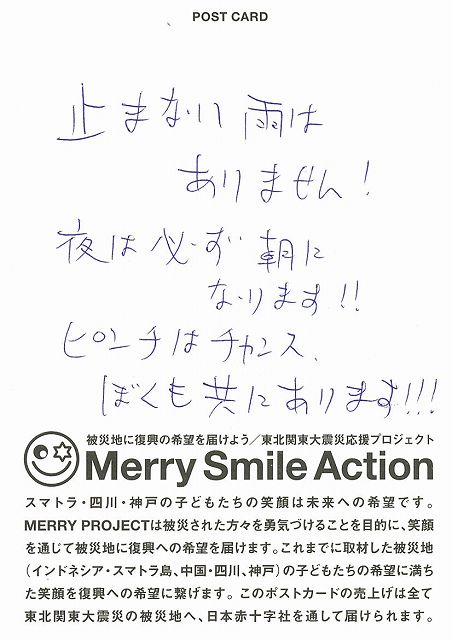 POST CARD
止まない雨は
ありません!
夜は必ず朝に
なります!!
ピンチはチャンス、
ぼくも共にあります!!!
被災地に復興の希望を届けよう/東北関東大震災応援プロジェクト
Merry Smile Action
スマトラ・四川・神戸の子どもたちの笑顔は未来への希望です。
MERRY PROJECTは被災された方々を勇気づけることを目的に、笑顔
を通じて被災地に復興への希望を届けます。これまでに取材した被災地
(インドネシア・スマトラ島、中国・四川、神戸)の子どもたちの希望に満ち
た笑顔を復興への希望に繋げます。このポストカードの売上げは全て
東北関東大震災の被災地へ、日本赤十字社を通して届けられます。